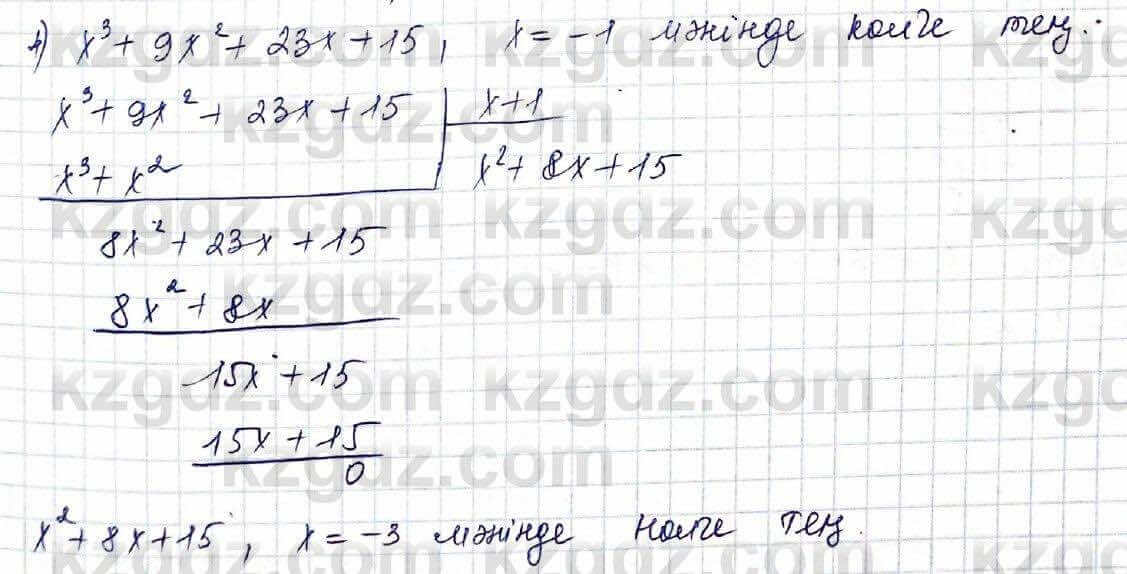 1) x³ + 9x² + 23x + 15, x = -1 мәнінде нөлге тең.
x³ + 9x² + 23x + 15 | x+1
x³ + x² | x² + 8x + 15
8x² + 23x + 15
8x² + 8x
15x + 15
15x + 15
0
x² + 8x + 15, x = -3 мәнінде нөлге тең.
kzgdz.com